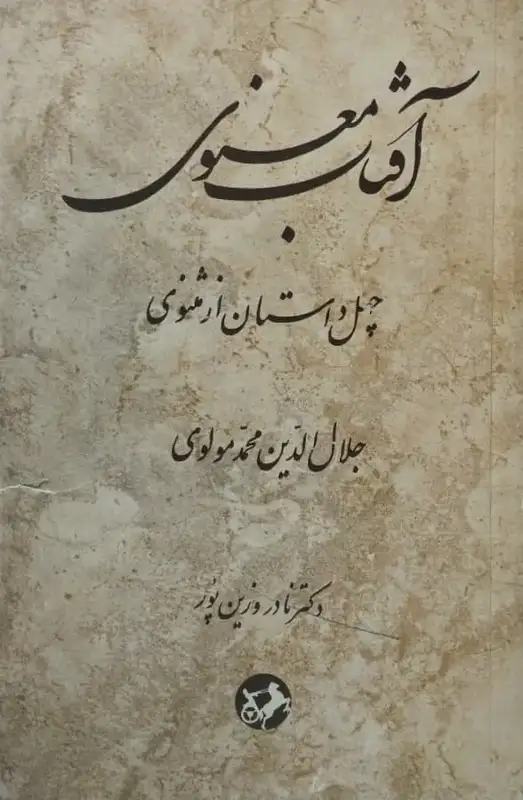 آفتاب معنوی
چهل داستان از مثنوی
جلال الدّین محمّد مولوی
دکتر نادر وزین پور